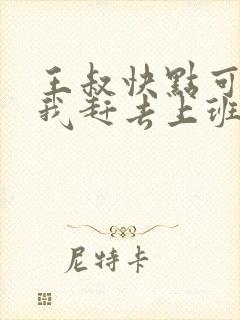 王叔快點可
我赶去上班
尼特卡